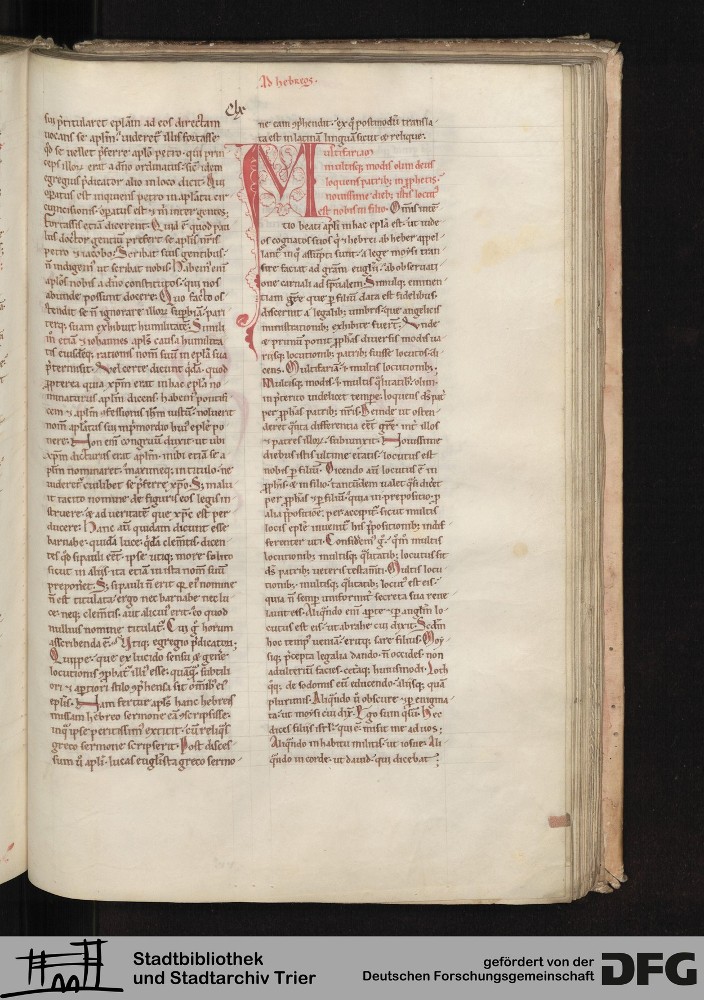 Ad hebreos.
Clx
sui p̄titularet eplām ad eos directam
uocans se aplm̄. uideret illis fortasse
qd̄ se uellet p̄ferre aplo petro. qui prin
ceps illoꝝ erat a dn̄o ordinatus. sic idem
egregius p̄dicator alio in loco dicit. Qui
opatus est inquiens petro in aplatu cir
cuncisionis. opatus est & m̄ inter gentes.
fortassis etiā dicerent. Quia ē quod pau
lus doctor gentiū prefert se aplis nr̄is
petro & iacobo. Scribat suis gentibus.
n̄ indigem̄ ut scribat nobis. Habem̄ eni
aplos nobis a dn̄o constitutos. qui nos
abunde possunt docere. Quo facto os
tendit se n̄ ignorare illoꝝ supbiā. pari
terq; suam exhibuit humilitatē. Simili
m̄ etiā & iohannes apls causa humilita
tis eiusdēq; rationis nom̄ suū in epla sua
p̄termisit. Vel certe dicunt qdā. quod
ppterea quia xpm̄ erat in hac epla no
minaturus aplm̄ dicens. habem̄ pontifi
cem & aplm̄ cfessionis ihm̄ iustū. noluerit
nom̄ aplatus sui in p̄mordio hui eple po
nere. Non enī congruū duxit. ut ubi
xpm̄ dicturus erat aplm̄. inibi etiā se a
plm̄ nominaret. maximeq; in titulo. ne
uideret cuilibet se p̄ferre xpo. S; malu
it tacito nomine de figuris eos legis in
struere. & ad ueritatē que xpc est per
ducere. Hanc aū quidam dicunt esse
barnabe. quidā luce. qdā clem̄tis. dicen
tes qd̄ si pauli eēt. ipse utiq; more solito
sicut in aliis ita etiam in ista nom̄ suū
preponet. S; si pauli n̄ erit qr ei nomine
n̄ est titulata. ergo nec barnabe nec lu
ce. neq; clem̄tis. aut alicui erit. eo quod
nullius nomine titulat. Cui g̊ horum
asscribenda ē. Vtiq; egregio p̄dicatori.
Quippe. que ex lucido sensu & gene
locutionis pbat illi esse. quaq; subtili
ori & aptiori stilo cp̄hensa sit om̄ib ei
eplis. Nam fertur apls hanc hebreis
missam hebreo sermone eā scripsisse.
inq ipse peritissim extitit. cū reliqs
greco sermone scripserit. Post disces
sum u apli. lucas euglista greco sermo
ne eam cp̄hendit. ex q postmodū transla
ta est in latinā linguā sicut & relique.
Multifariam
multisq; modis olim deus
loquens patrib; in pphetis.
nouissime dieb; istis locut
est nobis in filio. Om̄is intē
tio beati apli in hac epla est. ut uide
os cognatos suos q & hebrei ab heber appel
lant. inq assūpti sunt. a lege moysi tran
sire faciat ad gr̄am euglii. ab obseruati
one carnali ad sp̄ialem. Simulq; eminen
tiam gr̄e que p filiū data est fidelibus
discernit a legalib; umbris. que angelicis
ministrationib; exhibite fuert. Vnde
& primū ponit pp̄alos diuersis modis ua
riisq; locutionib; patrib; fuisse locutos. di
cens. Multifariā. & multis locutionib;.
Multisq; modis. & multis qlitatib;. olim.
in p̄terito uidelicet tempe. loquens ds pat
per pphās patrib; nr̄is. Deinde ut osten
deret qnta differentia eēt gr̄e int illos
& patres illoꝝ. subiunxit. Nouissime
diebus istis ultime etatis. locutus est
nobis p filiū. Dicendo aū locutus ē in
pphis. & in filio. tantundem ualet qsi dicet
per pphās & p filiū. quia in prepositio p
alia p̄positiōe. per. accipit. sicut multis
locis eplē inuenit his p̄positionib; indif
ferenter uti. Considem g̊. qm̄ multis
locutionib; multisq; qlitatib; locutus sit
ds patrib; ueteris testam̄ti. Multis locu
tionib;. multisq; qlitatib; locut est eis.
quia n̄ semp uniformit secreta sua reue
lauit eis. Aliqn̄do enī apte & p anglm̄ lo
cutus est eis. ut abrahe cui dixit. Scdm̄
hoc temp ueniā. eritq; sare filius. Moy
siq; p̄cepta legalia dando. n̄ occides. non
adulteriū facies. cetāq; huiusmodi. Loth
qq; de sodomis eū educendo. aliisq; quā
plurimis. Aliqn̄do u obscure & p enigma
ta. ut moysi cui dix̄. Ego sum q sū. Hec
dices filiis isrl. qui ē misit me ad uos.
Aliqn̄do in habitu militis. ut iosue. Ali
qn̄do in corde. ut dauid. qui dicebat.
Stadtbibliothek
und Stadtarchiv Trier
gefördert von der
Deutschen Forschungsgemeinschaft
DFG